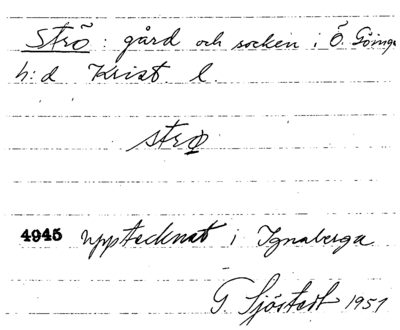 Strö : gård och socken i Ö. Göinge
h:d Krist l.
strø
4945 upptecknat i Ignaberga
G. Sjöstedt 1951